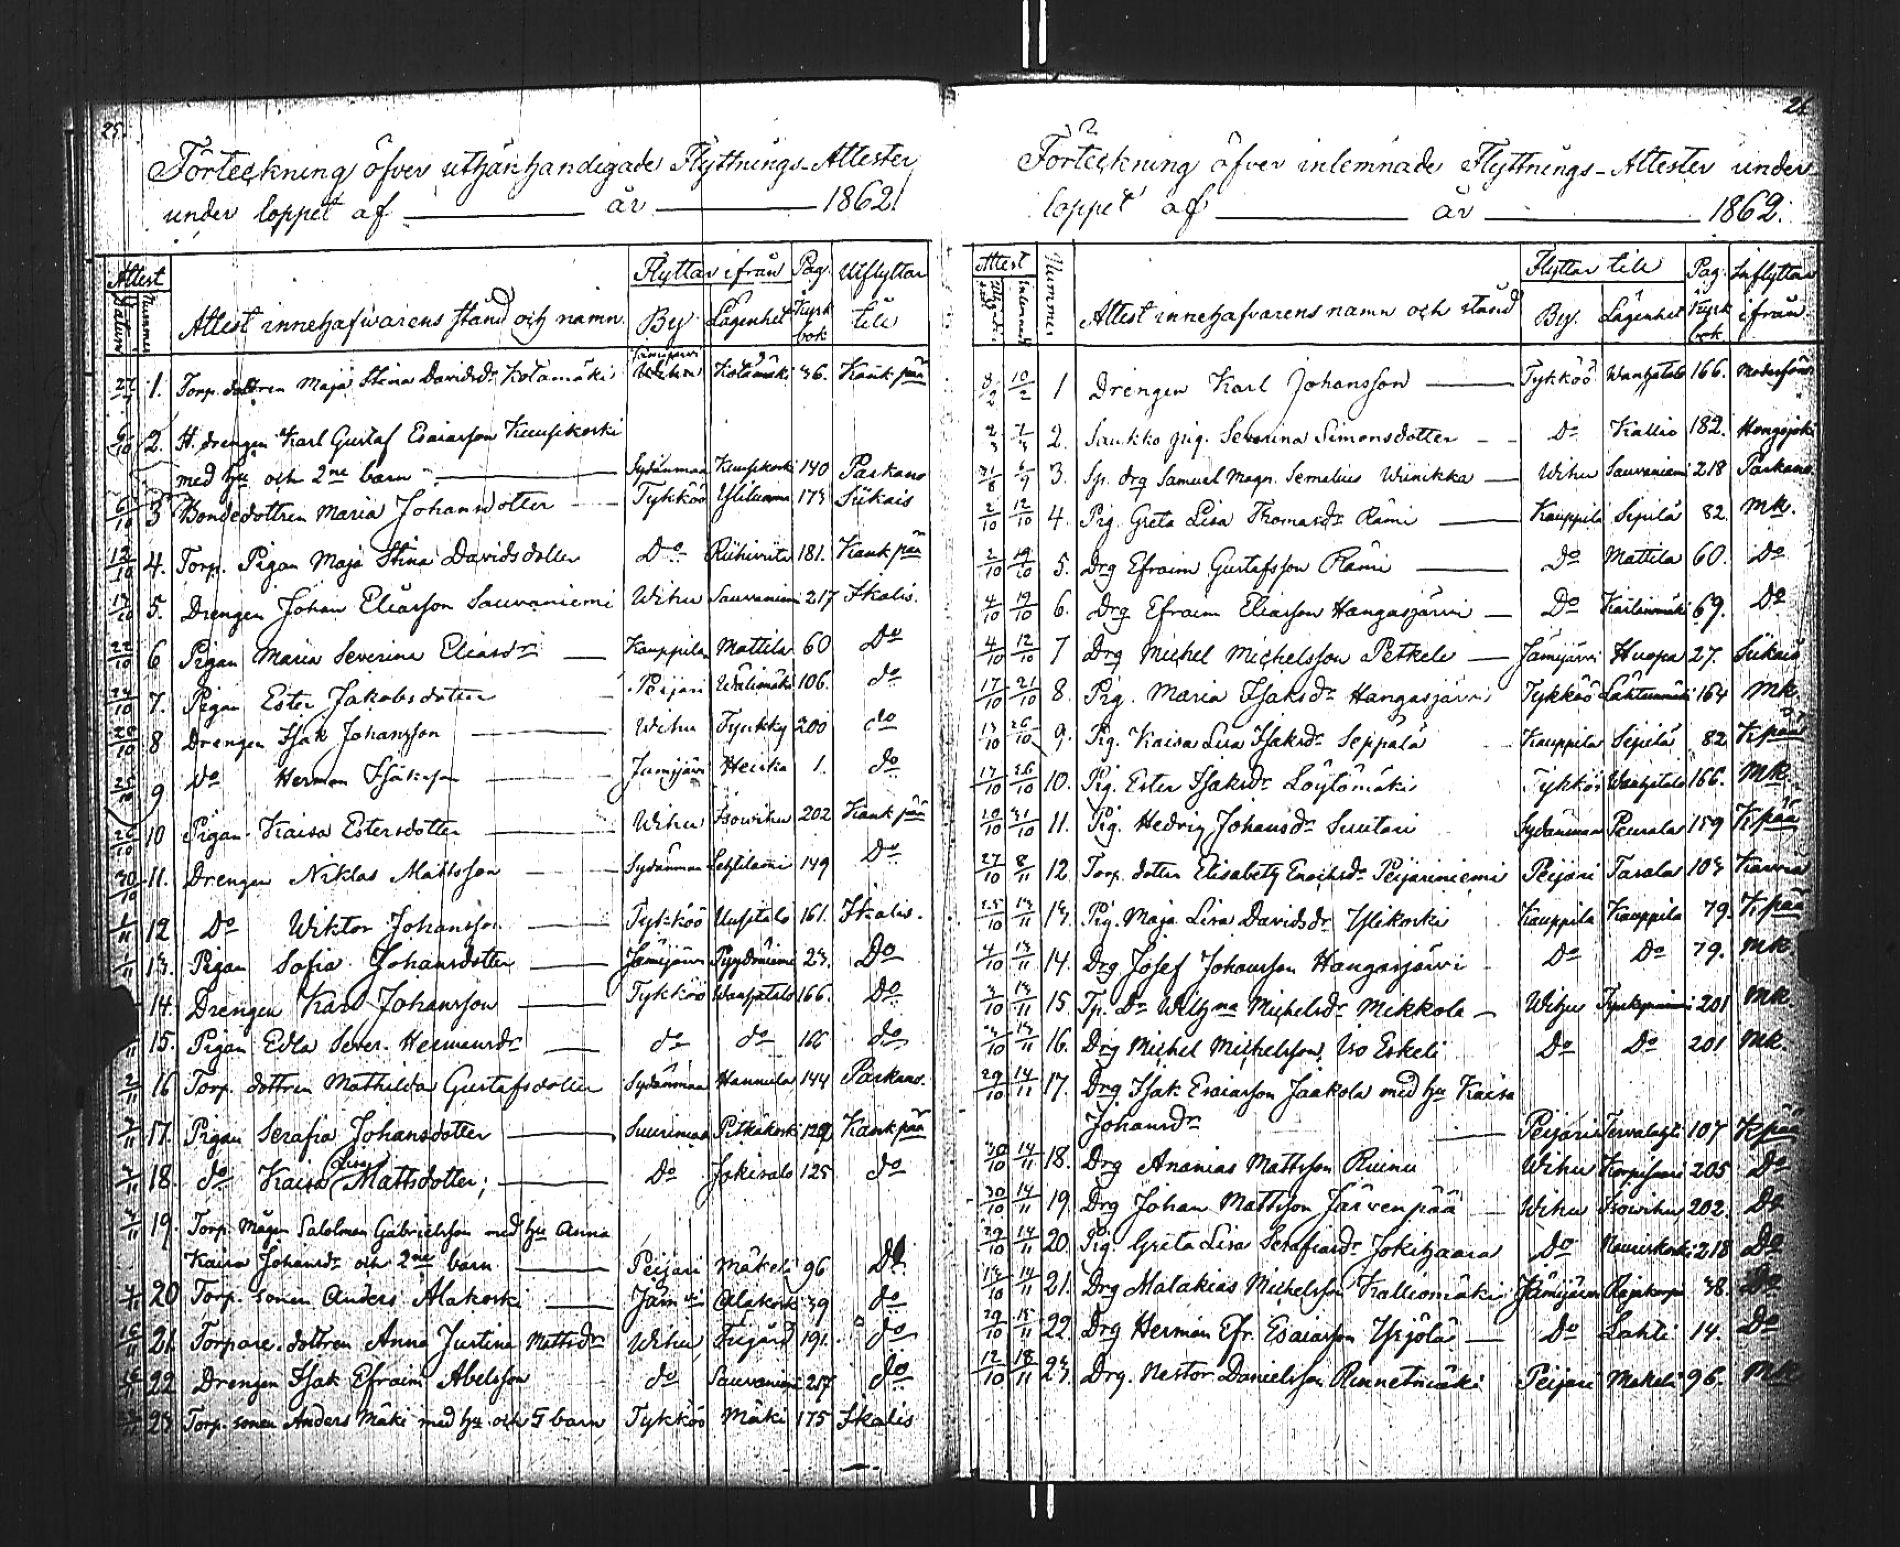 25.
Förteckning öfver uthänhandigade Flyttnings-Attester
under loppet af år 1862.
Attest
Datum Nummer Attest innehafwarens stånd och namn. Flyttar ifrån By Lägenhet Pag. Kyrk bok Utflyttar till
1. Torp. dottren Maja Stina Davidsdr Kotamäki Jämijärvi Kotamäki 36. Kankpää
6/10 2. H. drengen Karl Gustaf Esaiasson Kuusikoski
med hu och 2ne barn Sydänmaa Kuusikoski 140 Parkano
6/10 3 Bondedottren Maria Johansdotter Tykköö Yliluoma 173 Siikais
12/10 4. Torp. Pigan Maja Stina Davidsdotter Do Riihiviita 181. Kankpää
5. Drengen Johan Eliasson Sauvaniemi Wihu Sauvaniemi 217 Ikalis.
22/10 6 Pigan Maria Severina Eliasdr Kauppila Mattila 60 Do
24/10 7. Pigan Ester Jakobsdotter Peijari Wälimäki 106. do
8 Drengen Isak Johansson Wihu Tyrkky 200 do
9 Do Herman Isaksson Jämijärvi Heiska 1. do
26/10 10 Pigan Kaisa Estersdotter Wihu Isowihu 202 Kankpää
30/10 11. Drengen Niklas Mattsson Sydänmaa Lehtilami 149 Do
1/11 12 Do Wiktor Johansson Tykköö Uusitalo 161. Ikalis.
1/11 13. Pigan Sofia Johansdotter Jämijärvi 23. Do
14. Drengen Karl Johansson Tykköö Wanhatalo 166. Do
15. Pigan Edla Sever. Hermansdr do do 166 do
2/11 16 Torp. dottren Mathilda Gustafsdotter Sydänmaa Hannula 144 Parkano.
17. Pigan Serafia Johansdotter Suurimaa Pitkäkoski 129 Kankpää
18. do Kaisa Lisa Mattsdotter; Do Jokisalo 125 do
19. Torp. mågen Salolmon Gabrielsson med hu Anna
Kaisa Johansdr och 2ne barn Peijari Mäkelä 96 Do
20 Torp. sonen Anders Alakoski Alakoski 39 do
21. Torpare. dottren Anna Justina Mattsdr Wihu 191. do
22 Drengen Isak Efraim Abelsson do Sauvaniemi 217 do
23 Torp. sonen Anders Mäki med hu och 5 barn Tykköö Mäki 175 Ikalis
26
Förteckning öfver inlemnade Flyttnings-Attester under
loppet af år 1862.
Attest Nummer Attest innehafvarens namn och stånd Flyttar till By. Lägenhet Pag. Kyrk bok Inflyttar ifrån
8/2 10/2 1 Drengen Karl Johansson Tykköö Wanhatalo 166.
2/3 7/3 2. Saukko pig. Severina Simonsdotter Do Kallio 182. Hongojoki
31/8 3. Sp. drg Samuel Magn. Sernelius Wiinikka Wihu Sauvaniemi 218 Parkano.
2/10 12/10 4. Pig. Greta Lisa Thomasdr Rämi Kauppila Sipilä 82. Mk.
2/10 19/10 5. Drg Efraim Gustafsson Rämi Do Mattila 60. Do
4/10 19/10 6. Drg Efraim Eliasson Hangasjärvi Do 69. Do
4/10 12/10 7 Drg Michel Michelsson Petkele Jämijärvi Huopa 27. Siikais
17/10 21/10 8. Pig. Maria Isaksdr Hangasjärvi Tykköö Lähteenmäki 164 Mk.
13/10 26/10 9. Pig. Kaisa Lisa Isaksdr Seppälä Kauppila Sipilä 82 Kpää
17/10 26/10 10. Pig. Ester Isaksdr Löytömäki Tykköö Wanhatalo 166. Mk.
20/10 31/10 11. Pig. Hedvig Johansdr Suutari Sydänmaa Peurala 159 Kpää
27/10 8/11 12 Torp. dotter Elisabeth Enochsdr Peijariniemi Peijari Tarala 103 Karvia
25/10 13/11 13. Pig. Maja Lisa Davidsdr Ylikoski Kauppila Kauppila 79. Kpää
4/10 13/11 14. Drg Josef Johansson Hangasjärvi Do Do 79. Mk
3/10 13/11 15 Tp. Dr Wilhna Michelsdr Mikkola Wihu 201 Mk.
3/10 13/11 16. Drg Michel Michelsson Iso Eskeli Do Do 201 Mk.
29/10 14/11 17. Drg Isak Esaiasson Jaakola med hu Kaisa
Johansdr Peijari Tervalahti 107 Kpää
30/10 14/11 18. Drg Ananias Mattsson Ruinu Wihu Korpisaari 205 Do
30/10 14/11 19. Drg Johan Mattsson Järvenpää Wihu Isowihu 202. Do
29/10 14/11 20. Pig. Greta Lisa Serafiasdr Jokihaara Do 218 Do
13/10 14/11 21. Drg Malakias Michelsson Kalliomäki Jämijärvi 38. Do
29/10 15/11 22. Drg Herman Efr. Esaiasson Yrjölä Do Lahti 14. Do
12/10 18/11 23. Drg. Nestor Danielsson Rennetmäki Peijari Mäkelä 96. Mk